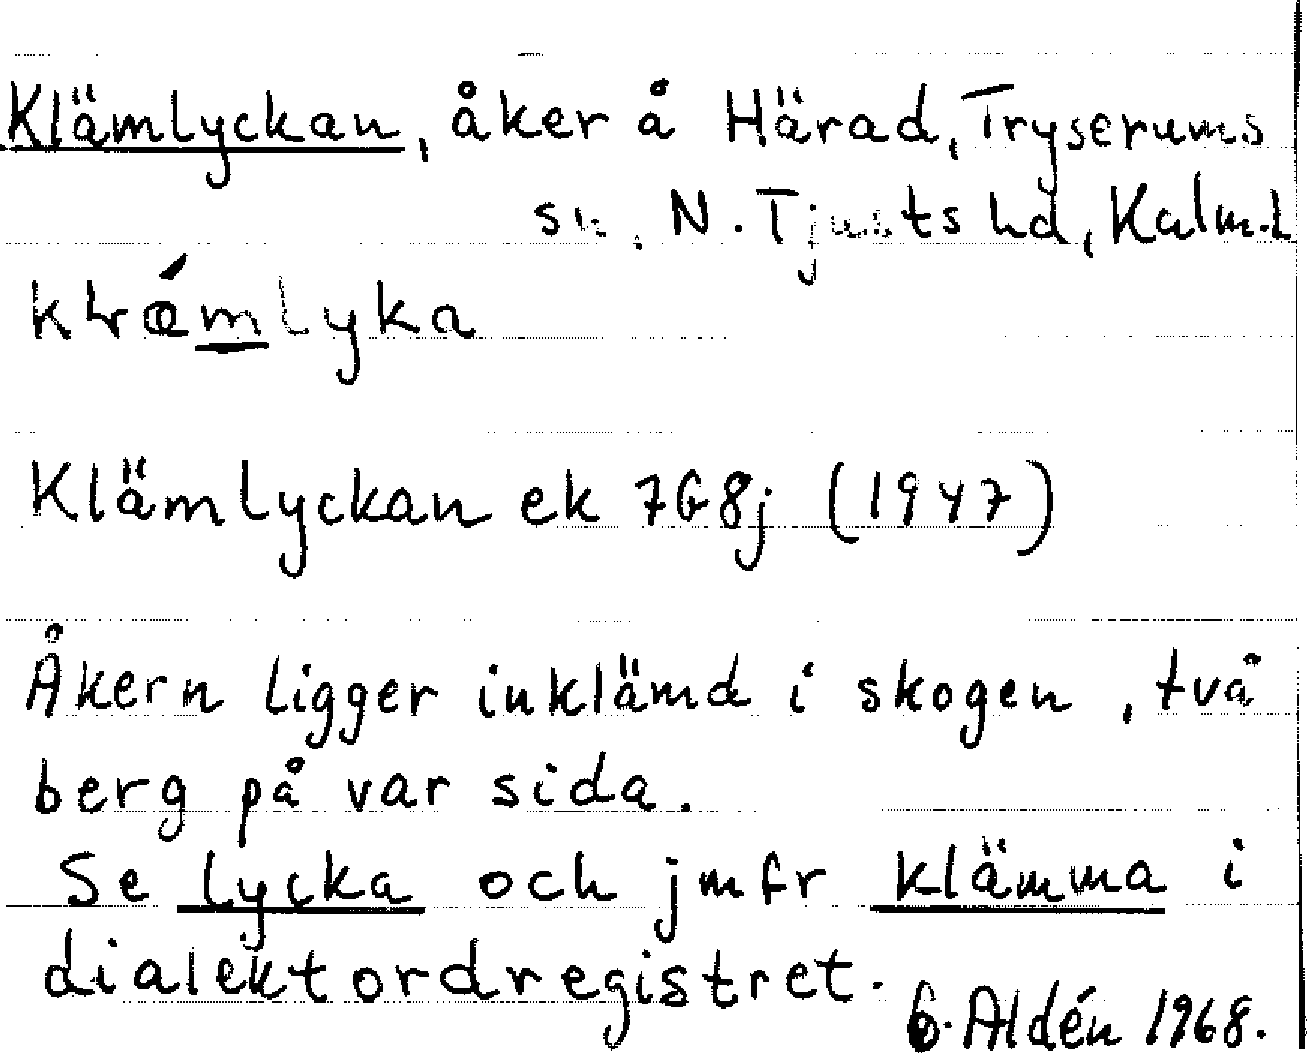 Klämlyckan, åker å Härad, Tryserums
sn. N. Tjusts hd, Kalm. L
Klämlyckan ek 7G8j (1947)
Åkern ligger inklämd i skogen, två
berg på var sida.
Se lycka och jmfr klämma i
dialektordregistret.
G. Aldén 1968.